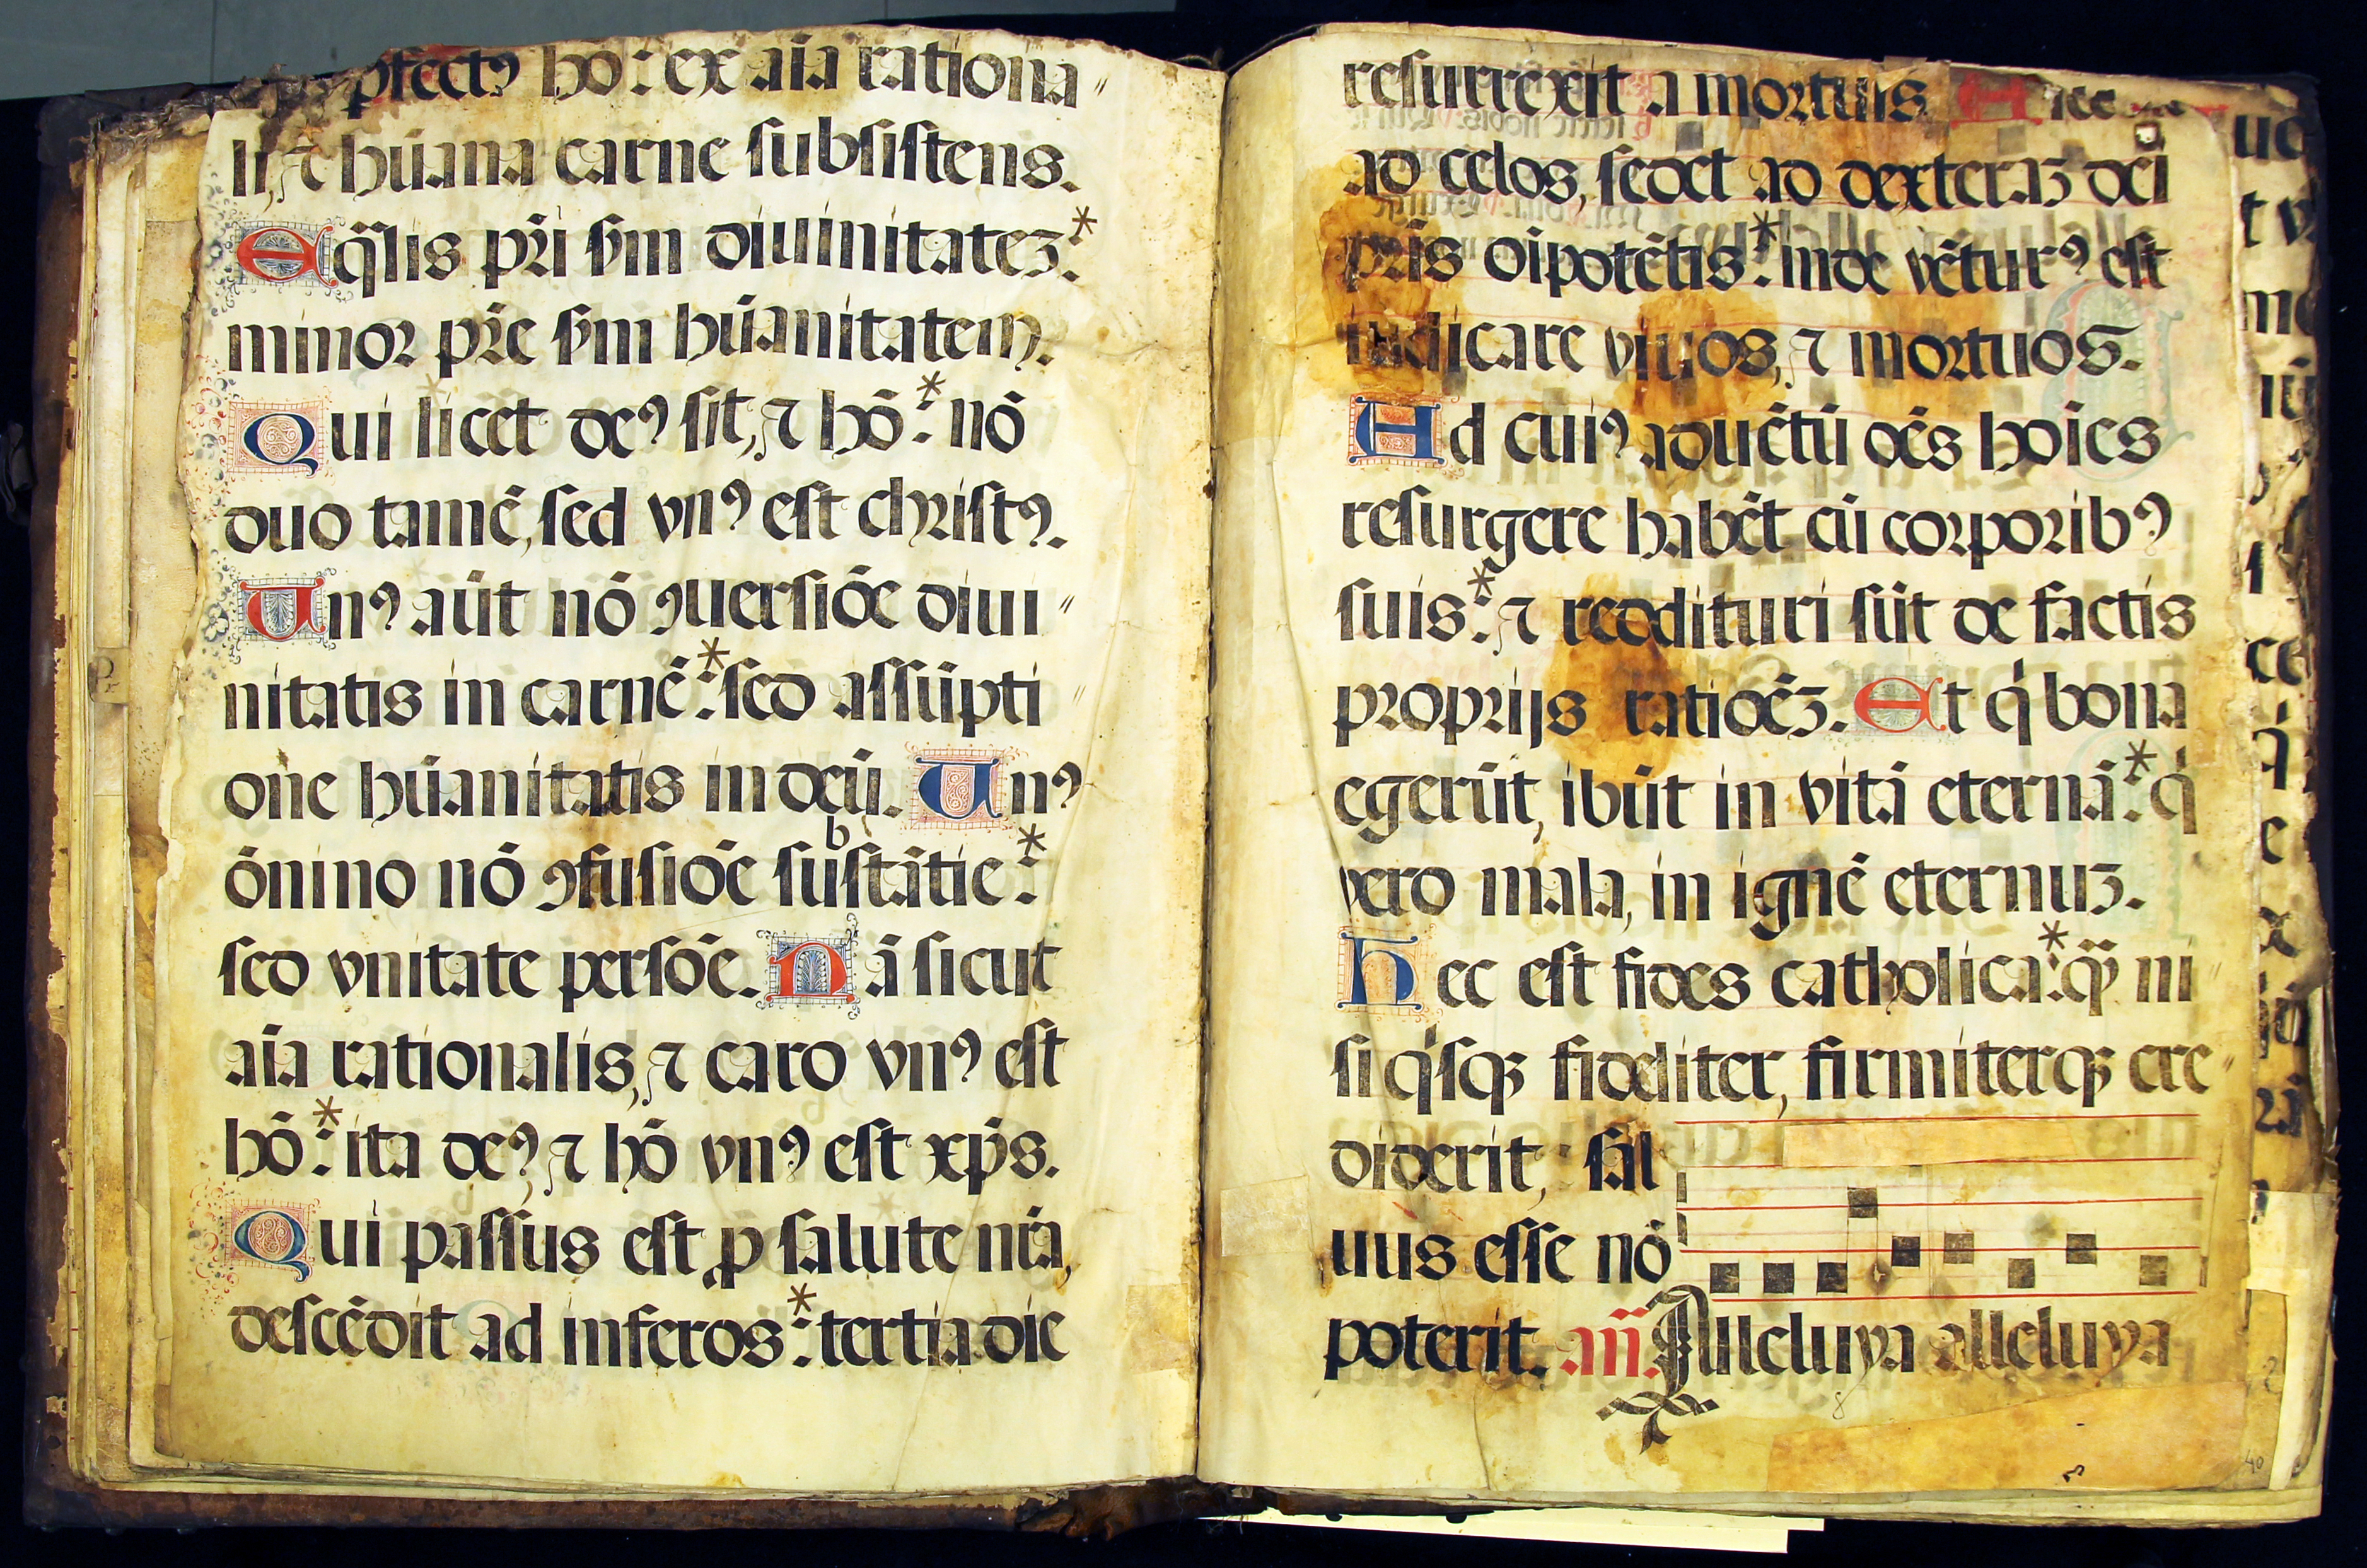 ꝑfectꝰ ho: ex aīa rationa〃
li, ⁊ hūana carne subsistens.
Eqͣlis pr̄i sm̄ diuinitatez:*
minor pr̄e sm̄ hūanitatem.
Qui licet deꝰ sit, ⁊ hō:* nō
duo tamē, sed vnꝰ est christꝰ.
Unꝰ aūt nō ꝯuersiōe diui〃
nitatis in carnē:* sed assūpti〃
one hūanitatis in deū. Unꝰ
ōnino nō ꝯfusiōe suᵇstātie:*
sed vnitate persōe. Nā sicut
aīa rationalis, ⁊ caro vnꝰ est
hō:* ita deꝰ, ⁊ hō vnꝰ est xp̄s.
Qui passus est, ꝓ salute nr̄a,
descēdit ad inferos:* tertia die
resurrexit a mortuis
ad celos, sedet ad dexteraz dei
pr̄is oīpotētis:* inde vēturꝰ est
iudicare viuos, ⁊ mortuos.
Ad cuiꝰ aduētū oēs hoīes
resurgere habēt cū corporibꝰ
suis:* ⁊ reddituri sūt de factis
proprijs ratioēz. Et qͥ bona
egerūt, ibūt in vitā eternā:* qͥ
vero mala, in ignē eternuz.
Hec est fides catholica:* qͣꝫ ni〃
si qͥsqꝫ fideliter, firmiterqꝫ cre〃
diderit, sal
uus esse nō
poterit. an̄. Alleluya alleluya
40